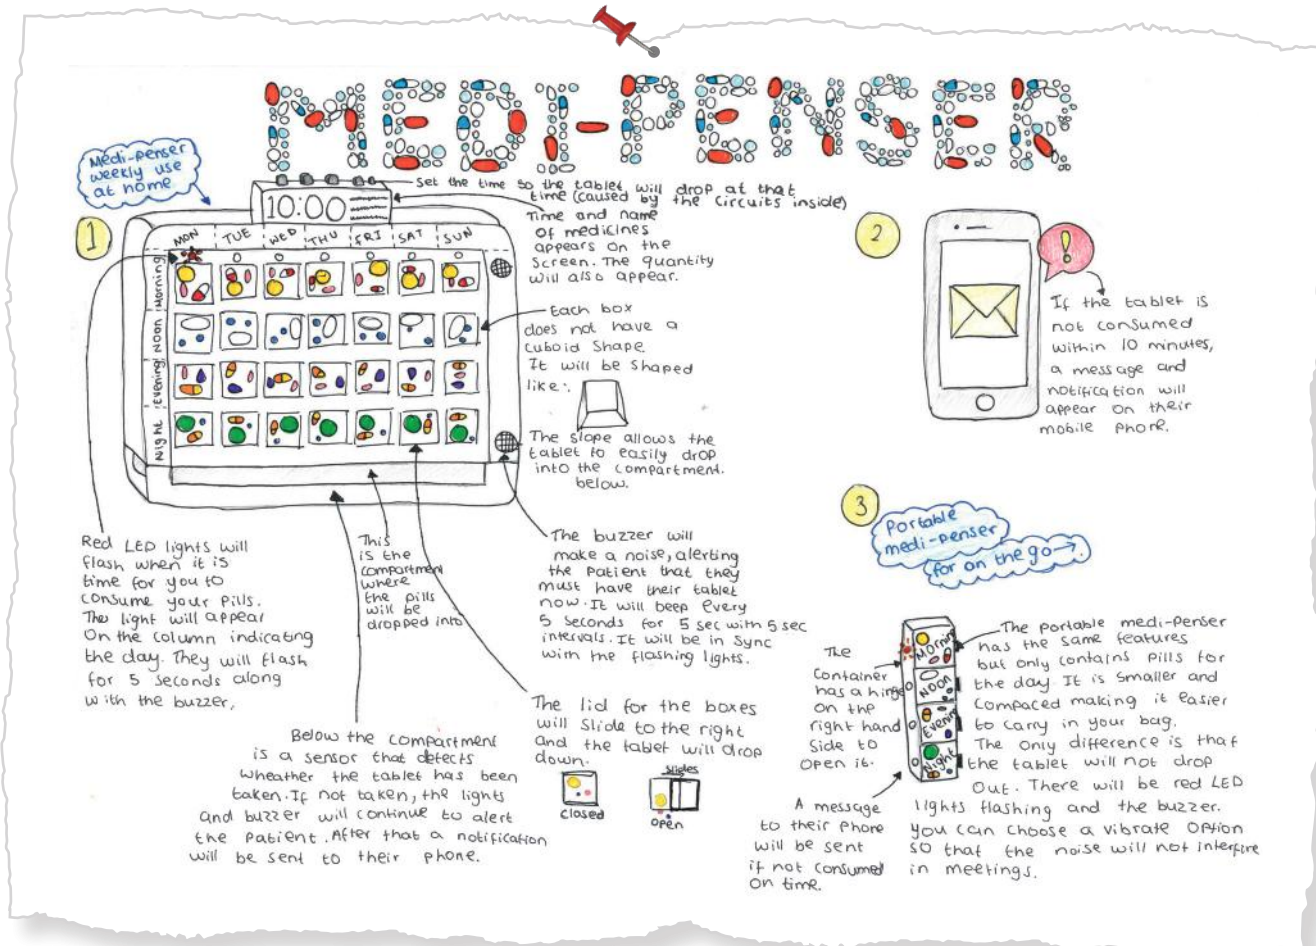 MEDI-PENSER
Medi-penser
weekly use
at home
1
Set the time so the tablet will drop at that
time (caused by the circuits inside)
10:00
Time and name
of medicines
appears on the
screen. The quantity
will also appear.
MON TUE WED THU FRI SAT SUN
Morning
Noon
Evening
Night
Each box
does not have a
cuboid shape.
It will be shaped
like:
The slope allows the
tablet to easily drop
into the compartment
below.
Red LED lights will
flash when it is
time for you to
consume your pills.
The light will appear
on the column indicating
the day. They will flash
for 5 seconds along
with the buzzer,
This
is the
compartment
where
the pills
will be
dropped into
The buzzer will
make a noise, alerting
the patient that they
must have their tablet
now. It will beep every
5 seconds for 5 sec with 5 sec
intervals. It will be in sync
with the flashing lights.
Below the compartment
is a sensor that detects
wheather the tablet has been
taken. If not taken, the lights
and buzzer will continue to alert
the patient. After that a notification
will be sent to their phone.
The lid for the boxes
will slide to the right
and the tablet will drop
down.
closed
slides
open
2
!
If the tablet is
not consumed
within 10 minutes,
a message and
notification will
appear on their
mobile phone.
3
Portable
medi-penser
for on the go→.
The
container
has a hinge
on the
right hand
side to
open it.
Morning
Noon
Evening
Night
A message
to their phone
will be sent
if not consumed
on time.
The portable medi-penser
has the same features
but only contains pills for
the day. It is smaller and
compaced making it easier
to carry in your bag.
The only difference is that
the tablet will not drop
out. There will be red LED
lights flashing and the buzzer.
you can choose a vibrate option
so that the noise will not interfire
in meetings.